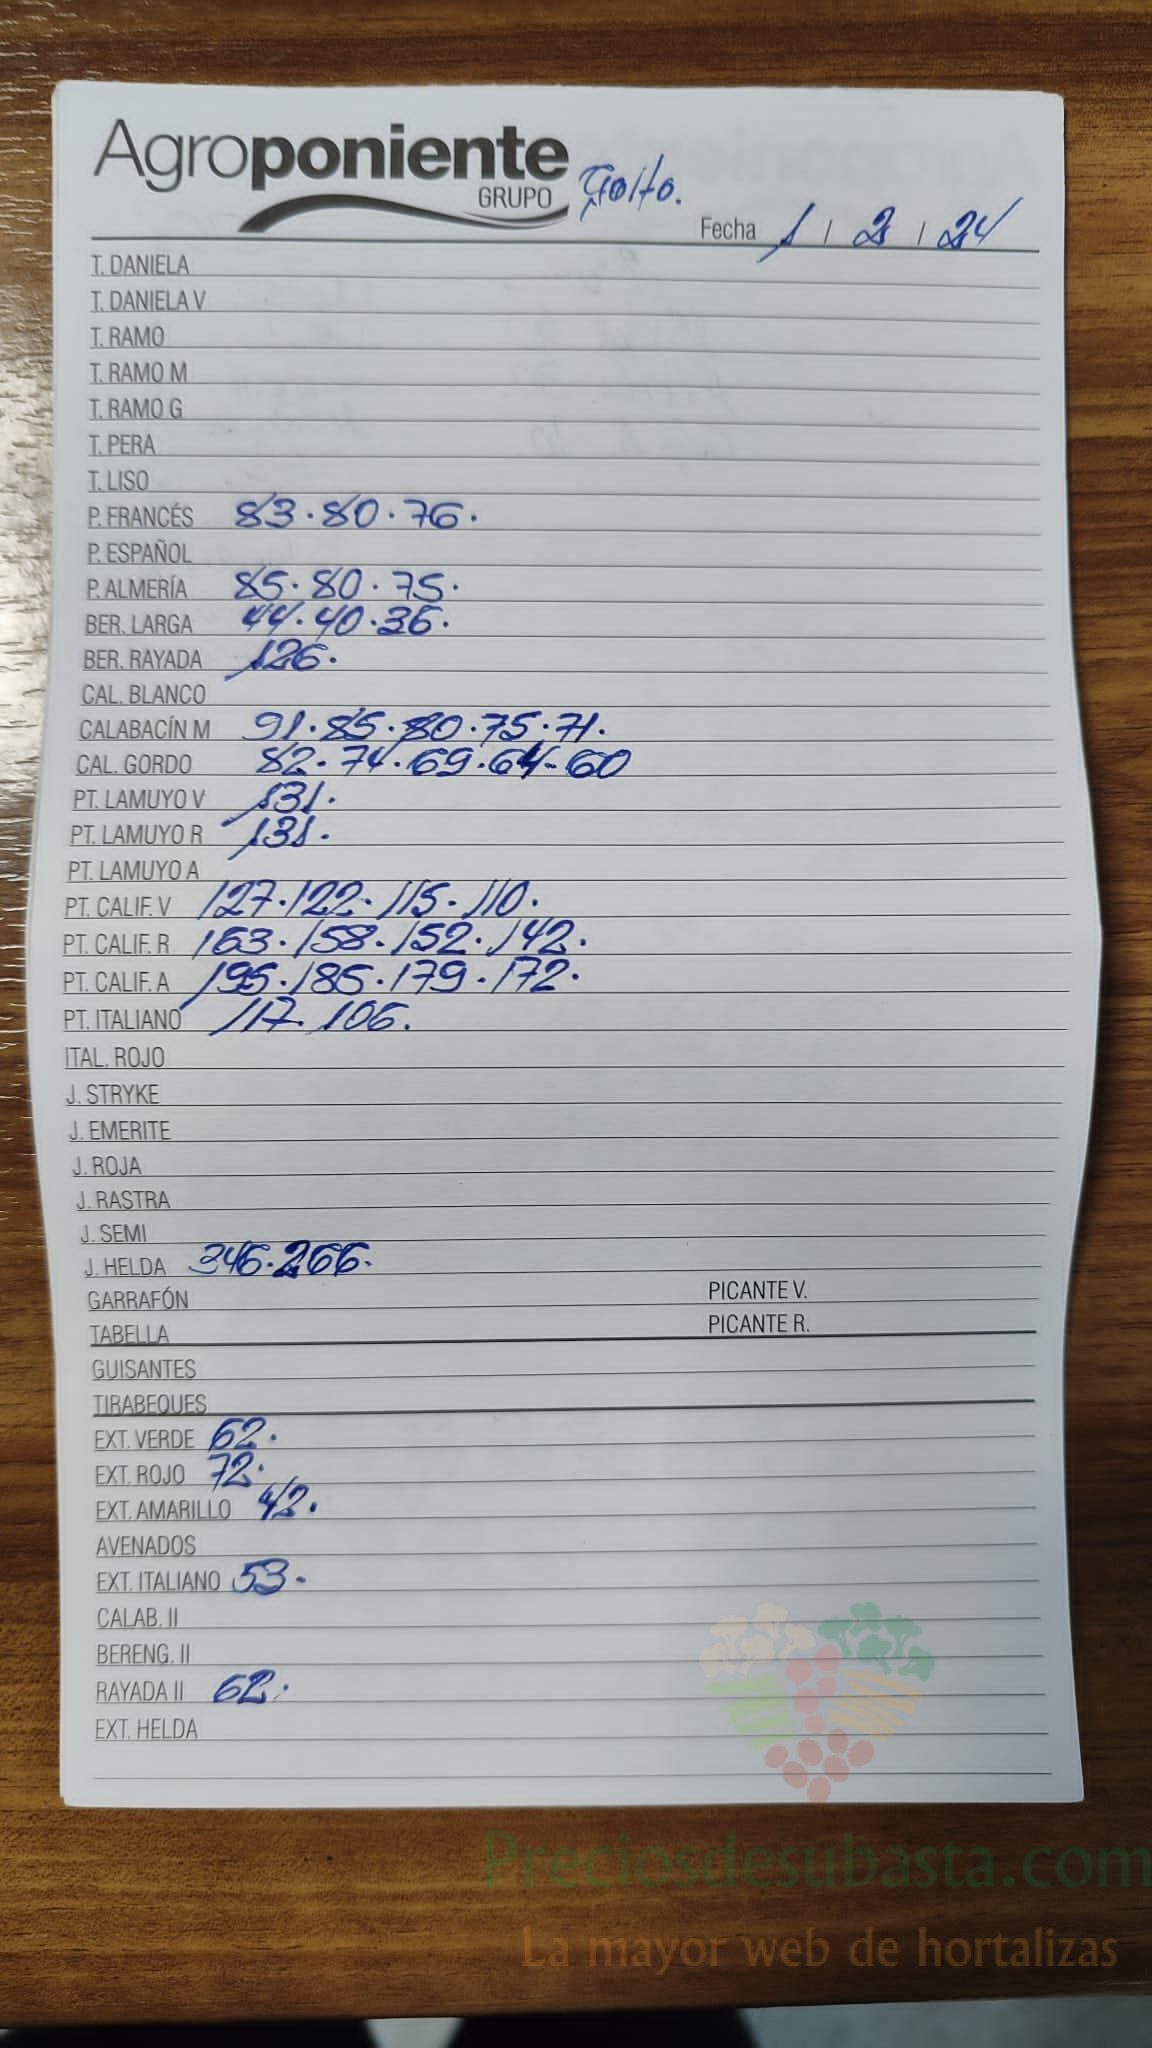 Agroponiente
GRUPO
Golfo.
Fecha 1 / 2 / 24
T. DANIELA
T. DANIELA V
T. RAMO
T. RAMO M
T. RAMO G
T. PERA
T. LISO
P. FRANCÉS 83.80.76.
P. ESPAÑOL
P. ALMERÍA 85.80.75.
BER. LARGA 44.40.36.
BER. RAYADA 126.
CAL. BLANCO
CALABACÍN M 91.85.80.75.71.
CAL. GORDO 82.74.69.64-60
PT. LAMUYO V 131.
PT. LAMUYO R 131.
PT. LAMUYO A
PT. CALIF. V 127.122.115.110.
PT. CALIF. R 163.158.152.142.
PT. CALIF. A 195.185.179.172.
PT. ITALIANO 117.106.
ITAL. ROJO
J. STRYKE
J. EMERITE
J. ROJA
J. RASTRA
J. SEMI
J. HELDA 346.266.
GARRAFÓN PICANTE V.
TABELLA PICANTE R.
GUISANTES
TIRABEQUES
EXT. VERDE 62.
EXT. ROJO 72.
EXT. AMARILLO 42.
AVENADOS
EXT. ITALIANO 53.
CALAB. II
BERENG. II
RAYADA II 62.
EXT. HELDA
Preciosdesubasta.com
La mayor web de hortalizas